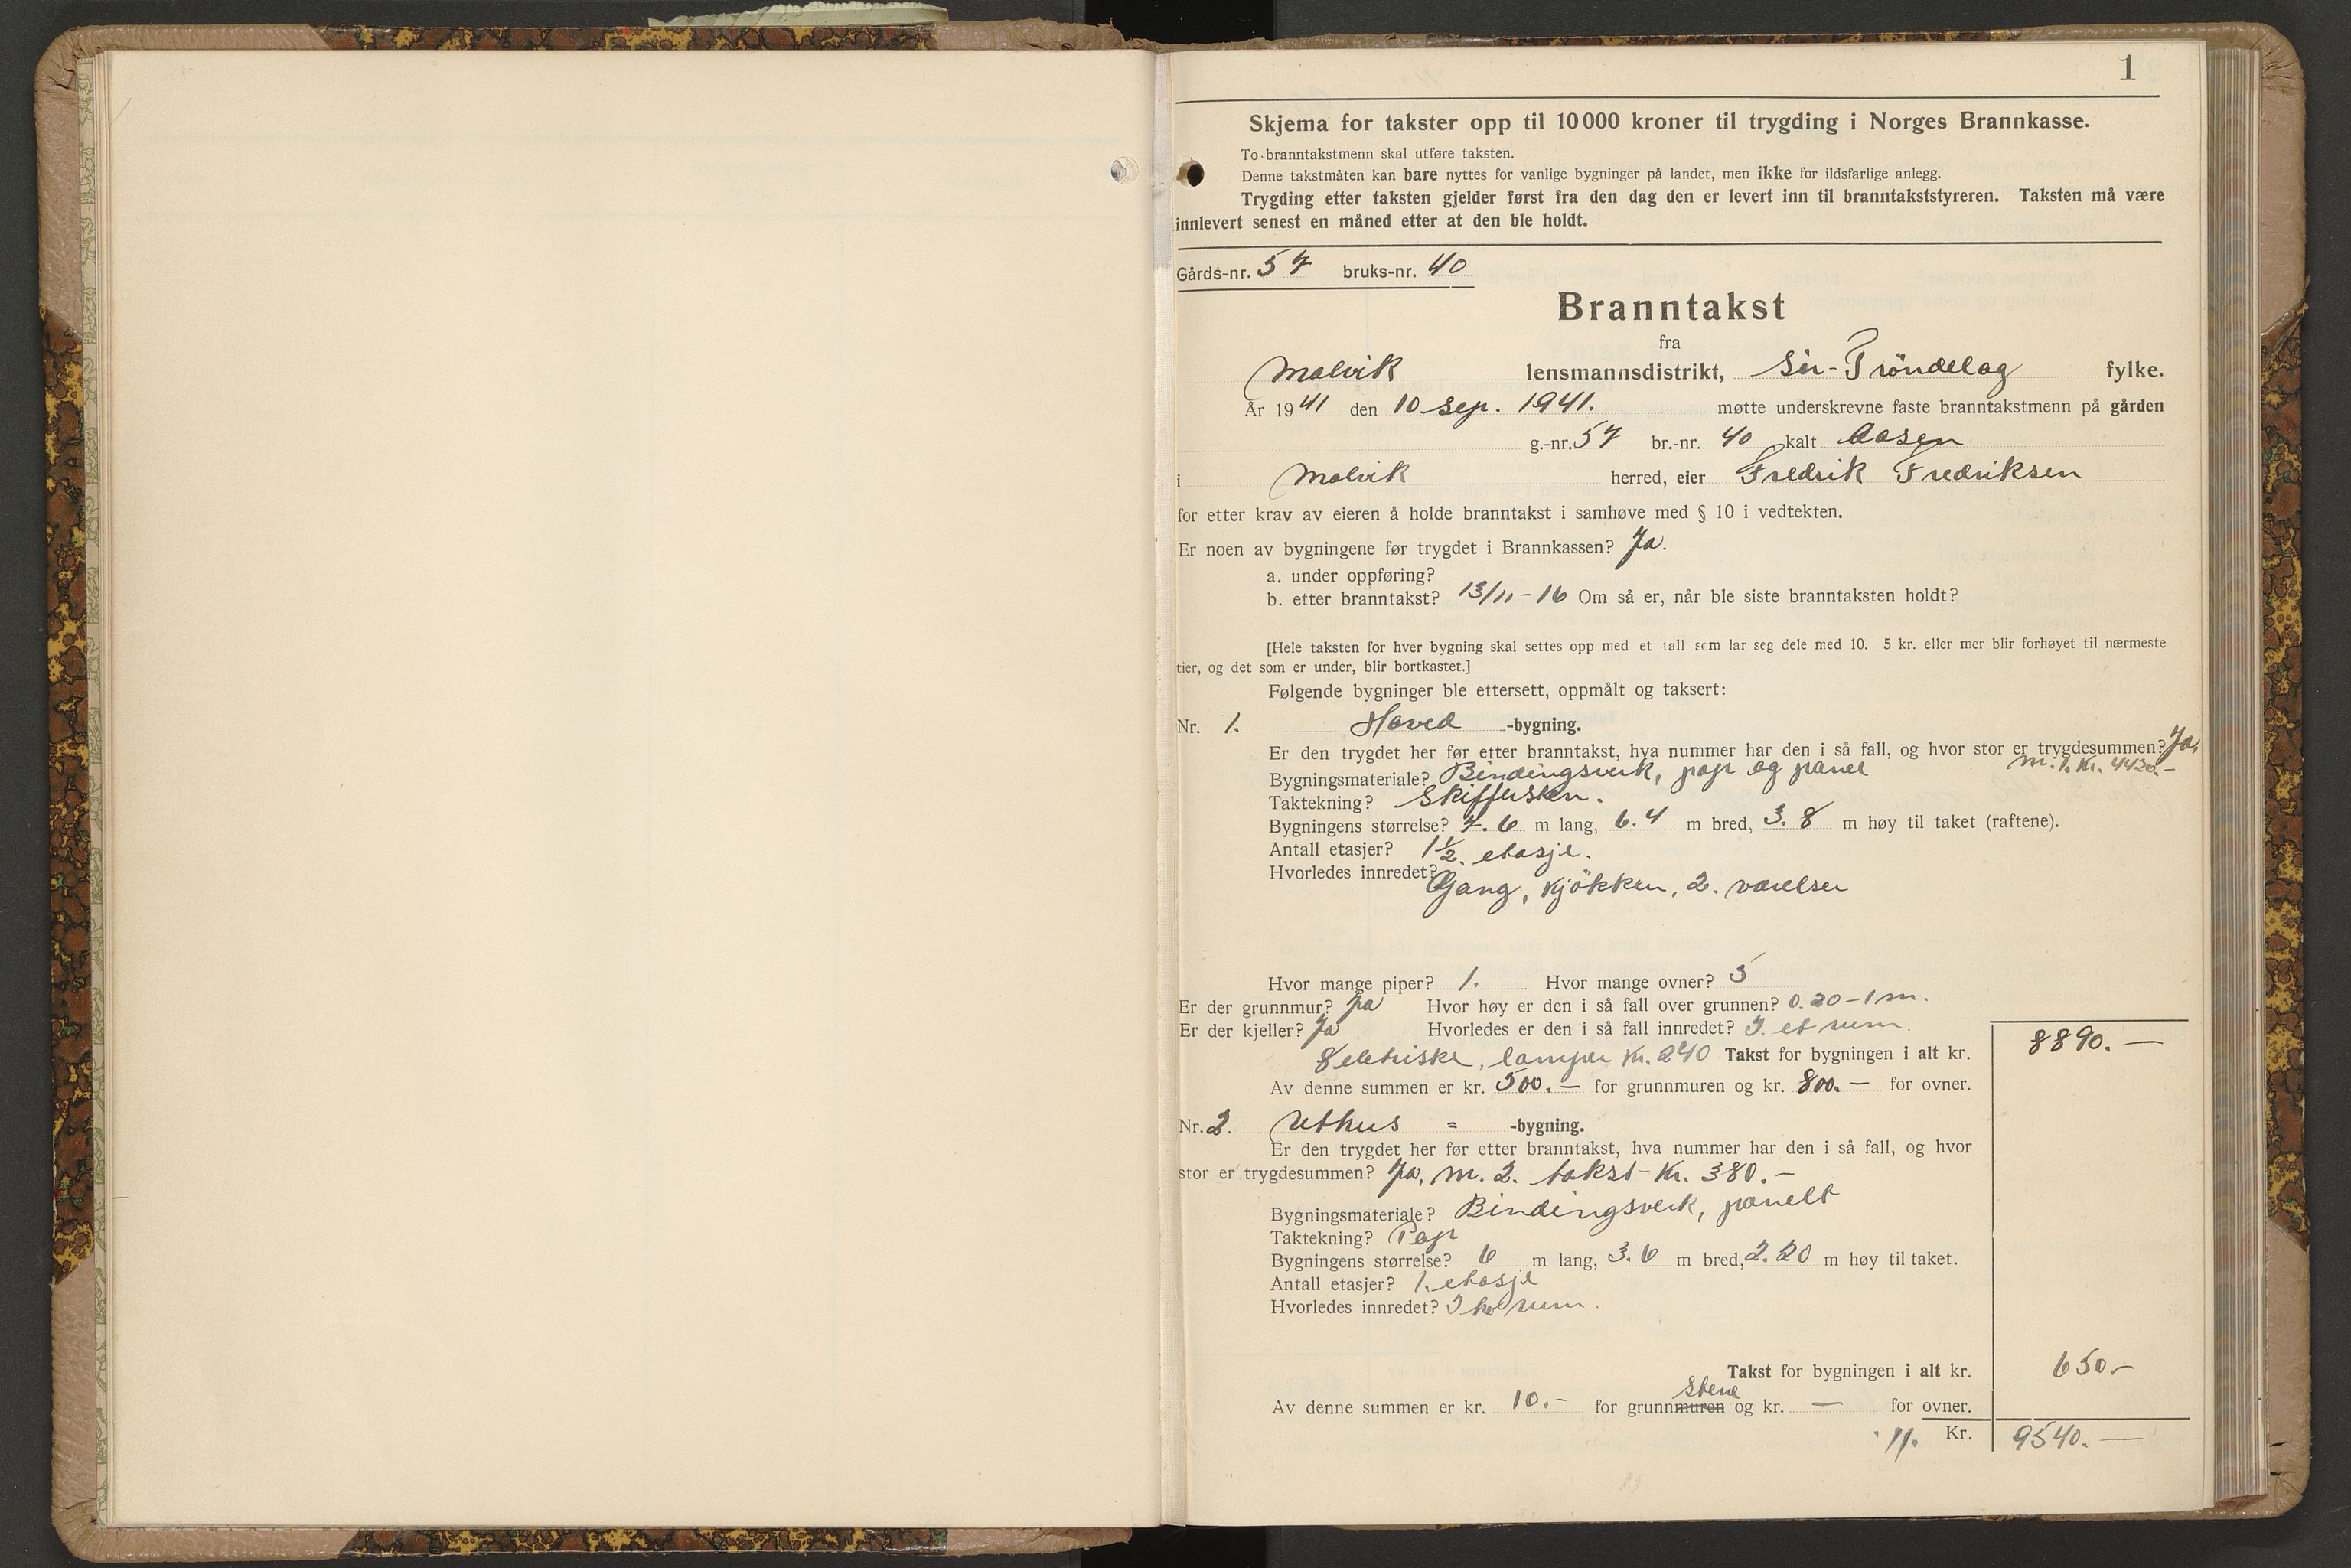 1
Skjema for takster opp til 10 000 kroner til trygding i Norges Brannkasse.
To branntakstmenn skal utføre taksten.
Denne takstmåten kan bare nyttes for vanlige bygninger på landet, men ikke for ildsfarlige anlegg.
Trygding etter taksten gjelder først fra den dag den er levert inn til branntakststyreren. Taksten må være
innlevert senest en måned etter at den ble holdt.
Gårds-nr. 57 bruks-nr. 40
Branntakst
fra
Malvik lensmannsdistrikt, Sör-Tröndelag fylke.
År 1941 den 10 sep. 1941. møtte underskrevne faste branntakstmenn på gården
g.-nr. 57 br.-nr. 40 kalt Aasen
i Malvik herred, eier Fredrik Fredriksen
for etter krav av eieren å holde branntakst i samhøve med § 10 i vedtekten.
Er noen av bygningene før trygdet i Brannkassen? Ja.
a. under oppføring?
b. etter branntakst? 13/11-16 Om så er, når ble siste branntaksten holdt?
[Hele taksten for hver bygning skal settes opp med et tall som lar seg dele med 10. 5 kr. eller mer blir forhøyet til nærmeste
tier, og det som er under, blir bortkastet.]
Følgende bygninger ble ettersett, oppmålt og taksert:
Nr. 1. Hoved -bygning.
Er den trygdet her før etter branntakst, hva nummer har den i så fall, og hvor stor er trygdesummen? Ja,
m. 1. Kr. 4420.-
Bygningsmateriale? Bindingsverk, pap og panel
Taktekning? Skiffersten.
Bygningens størrelse? 7.6 m lang, 6.4 m bred, 3.8 m høy til taket (raftene).
Antall etasjer? 1 1/2. etasje.
Hvorledes innredet?
Gang, kjökken, 2. værelser
Hvor mange piper? 1. Hvor mange ovner? 3
Er der grunnmur? Ja Hvor høy er den i så fall over grunnen? 0.20-1 m.
Er der kjeller? Ja Hvorledes er den i så fall innredet? I et rum.
8 eletriske, lamper Kr. 240 Takst for bygningen i alt kr. 8890.—
Av denne summen er kr. 500.— for grunnmuren og kr. 800.— for ovner.
Nr. 2. Uthus = -bygning.
Er den trygdet her før etter branntakst, hva nummer har den i så fall, og hvor
stor er trygdesummen? Ja, m. 2. takst Kr. 380.-
Bygningsmateriale? Bindingsverk, panelt
Taktekning? Pap
Bygningens størrelse? 6 m lang, 3.6 m bred, 2.20 m høy til taket.
Antall etasjer? 1. etasje
Hvorledes innredet? I rum.
Takst for bygningen i alt kr. 650.-
stene
Av denne summen er kr. 10.- for grunnmuren og kr. — for ovner.
11. Kr. 9540.—